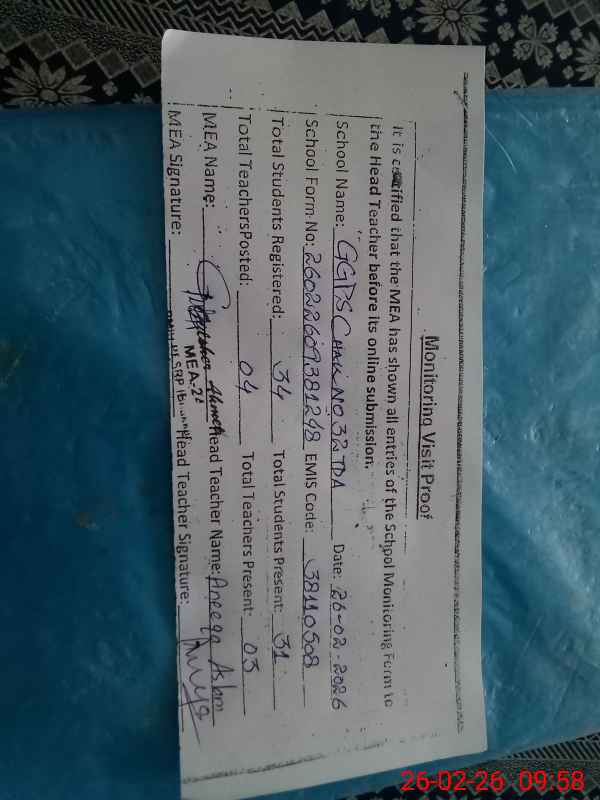 Monitoring Visit Proof
It is certified that the MEA has shown all entries of the School Monitoring Form to
the Head Teacher before its online submission.
School Name: GGPS Chak NO 32 TDA Date: 26-02-2026
School Form No: 26022609381248 EMIS Code: 38110508
Total Students Registered: 34 Total Students Present: 31
Total TeachersPosted: 04 Total Teachers Present: 03
MEA Name: Ahmed Head Teacher Name: Aneeqa Aslam
MEA-22
MEA Signature: Head Teacher Signature:
26-02-26 09:58